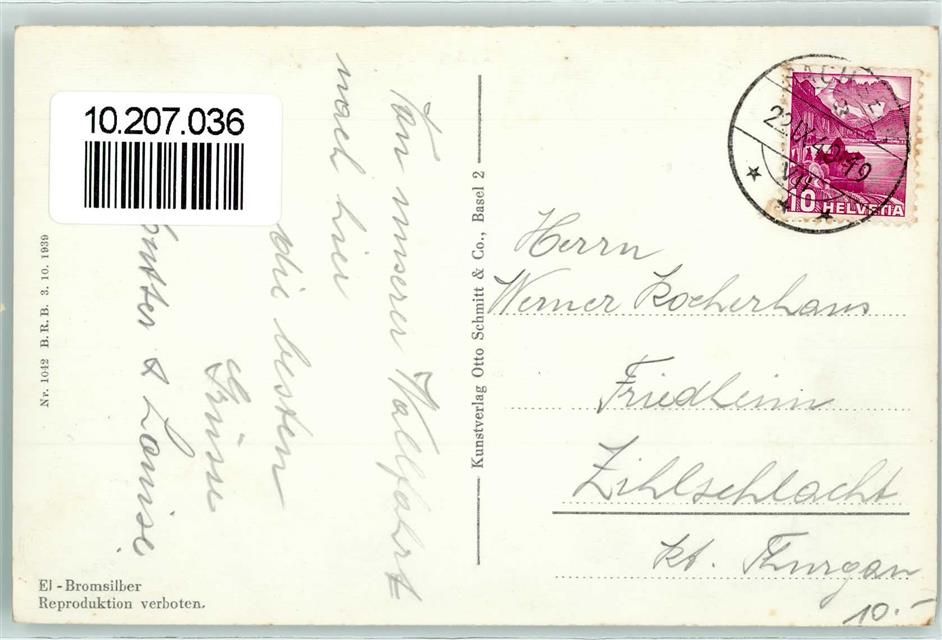 10.207.036
Von unserer Wallfahrt
nach hier
die besten
Grüsse
& Louise.
Nr. 1042 B.R.B. 3. 10. 1939
Kunstverlag Otto Schmitt & Co., Basel 2
El - Bromsilber
Reproduktion verboten.
22.IX.40.19
VIII
10 HELVETIA
Herrn
Werner Kocherhans
Friedheim
Zihlschlacht
Kt. Thurgau
10.-